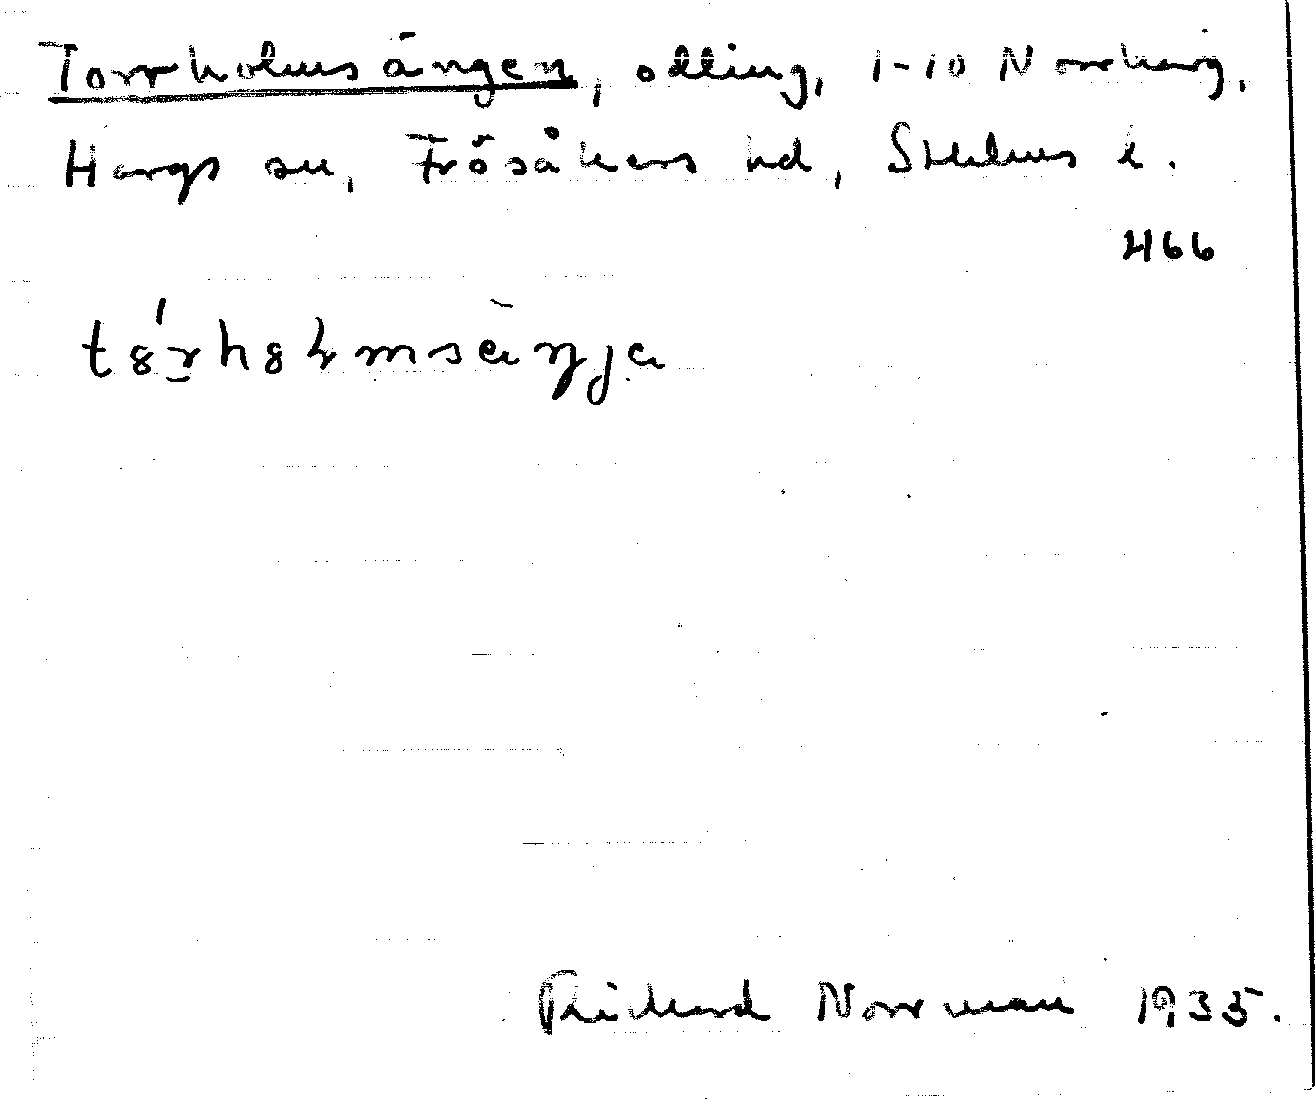 Torrholmsängen, odling, 1-10 Norrharg,
Hargs sn, Frösåkers hd, Sthlms l.
466
Richard Norrman 1935.